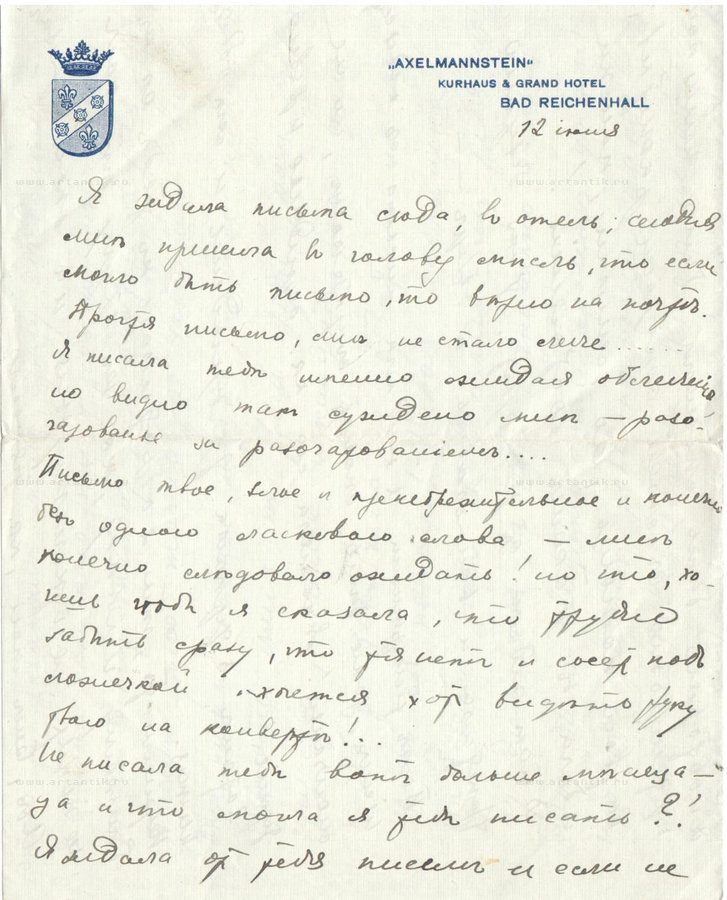 „AXELMANNSTEIN“
KURHAUS & GRAND HOTEL
BAD REICHENHALL
12 июня
Я ждала письма сюда, въ отель; сегодня
мнѣ пришла въ голову мысль, что если
могло быть письмо, то вѣрно на почтѣ.
письмо, мнѣ не стало легче.......
Я писала тебѣ именно ожидая облегченія
но видно такъ суждено мнѣ – разо-
чарованье за разочарованіемъ....
Письмо твое, злое и пренебрежительное и конечно
безъ одного ласковаго слова – мнѣ
конечно слѣдовало ожидать! но что, хо-
чешь чтобъ я сказала, что трудно
забыть сразу, что тянетъ и сосетъ подъ
ложечкой, хочется хоть видѣть руку
твою на конвертѣ!...
Не писала тебѣ вотъ больше мѣсяца –
да и что могла я тебѣ писать?!
Я ждала отъ тебя писемъ и если не
www.artantik.ru
www.artantik.ru
www.artantik.ru
www.artantik.ru
www.artantik.ru
www.artantik.ru